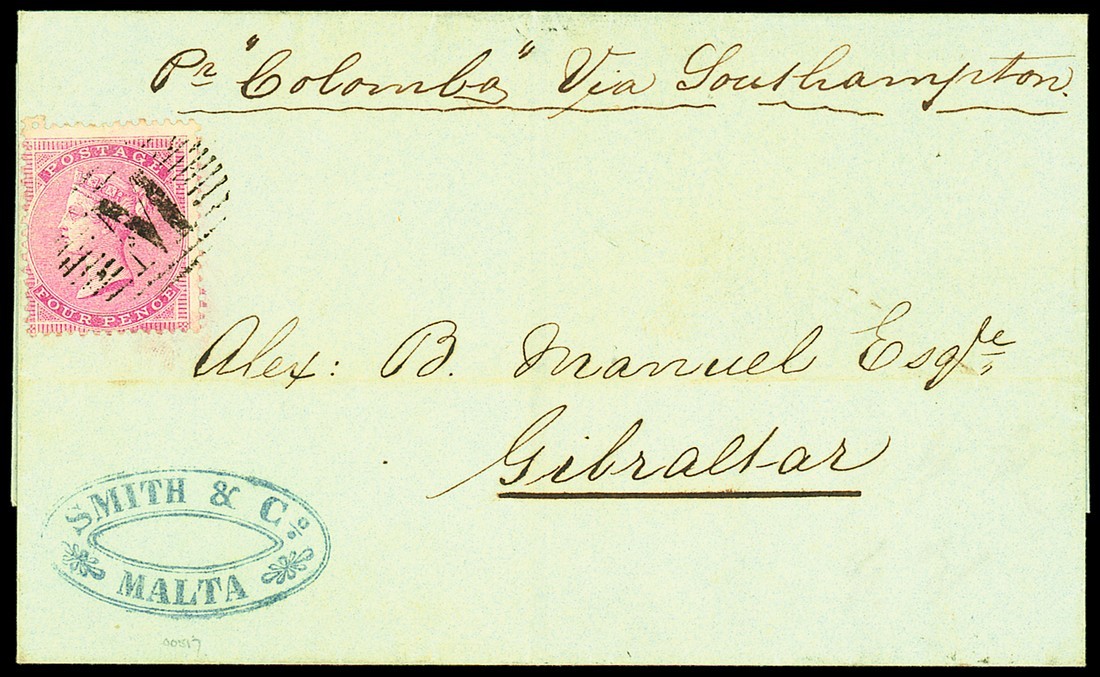 Pr "Colombo" Via Southampton.
POSTAGE
M
FOUR PENCE
Alex: B. Manuel Esqre
Gibraltar
SMITH & Co:
MALTA